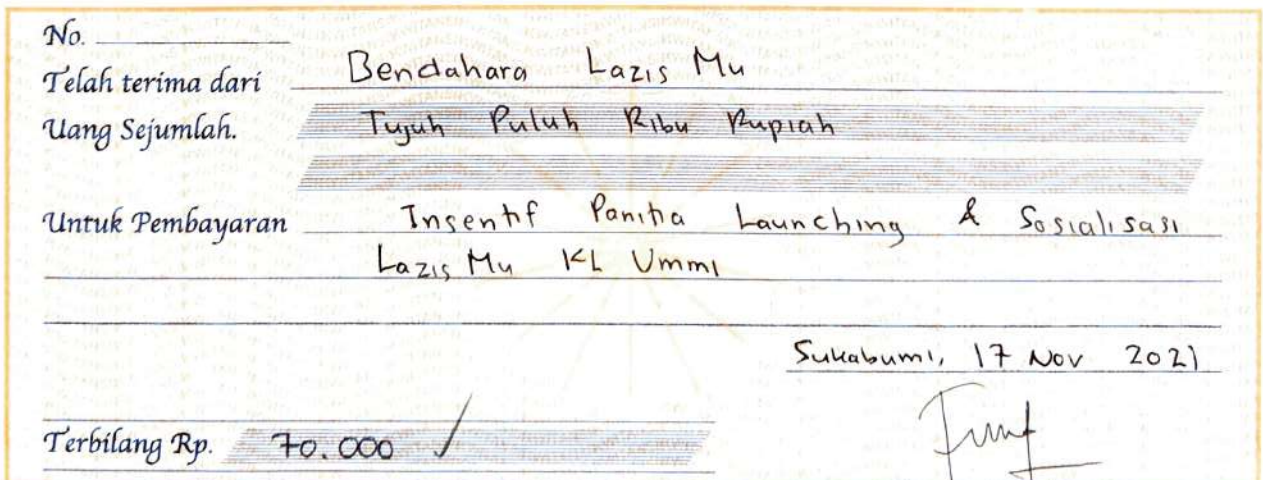 No.
Telah terima dari Bendahara Lazis Mu
Uang Sejumlah. Tujuh Puluh Ribu Rupiah
Untuk Pembayaran Insentif Panitia Launching & Sosialisasi
Lazis Mu KL Ummi
Sukabumi, 17 Nov 2021
Terbilang Rp. 70.000